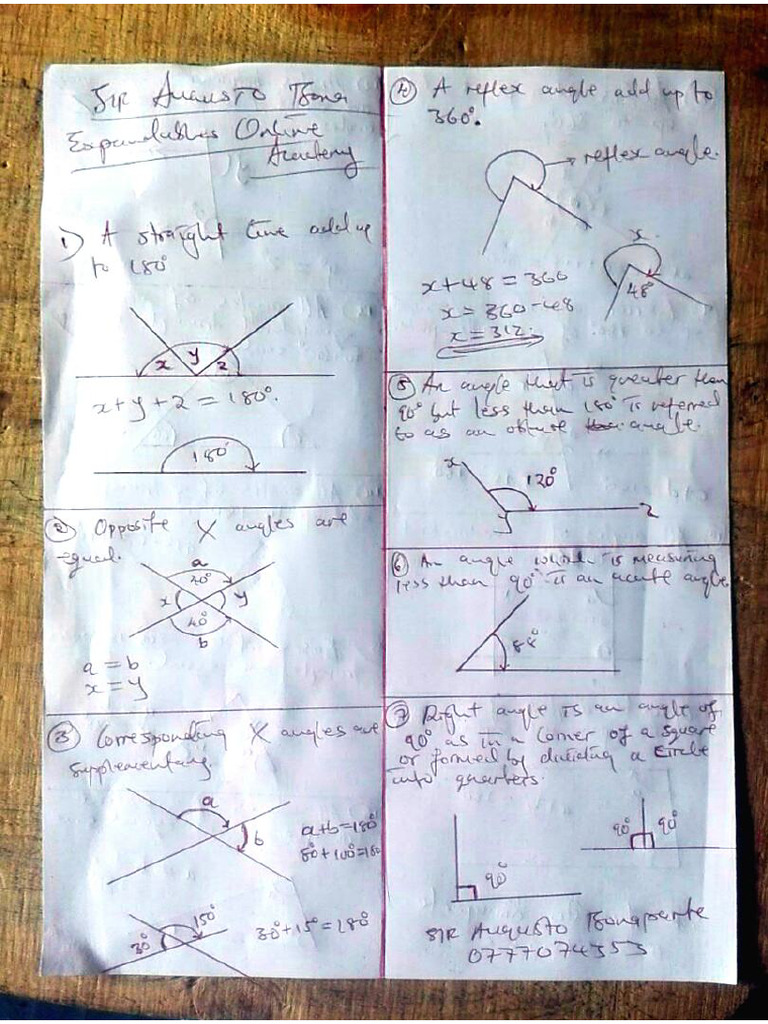 Sir Augusto Bona
Expandables Online
Academy
1) A straight line add up
to 180°
x y z
x+y+z = 180°.
180°
2 Opposite X angles are
equal.
a
40°
x y
40°
b
a = b
x = y
3 Corresponding X angles are
supplementary.
a
b
a+b=180°
80°+100°=180
150°
30°
30°+15°=180°
4 A reflex angle add up to
360°.
reflex angle.
x
48°
x+48 = 360
x = 360-48
x = 312.
5 An angle that is greater than
90° but less than 180° is referred
to as an obtuse angle.
x
120°
y z
6 An angle which is measuring
less than 90° is an acute angle
88°
7 Right angle is an angle of
90° as in a corner of a square
or formed by dividing a circle
into quarters.
90° 90°
90°
SIR Augusto Bonaparte
0777074353